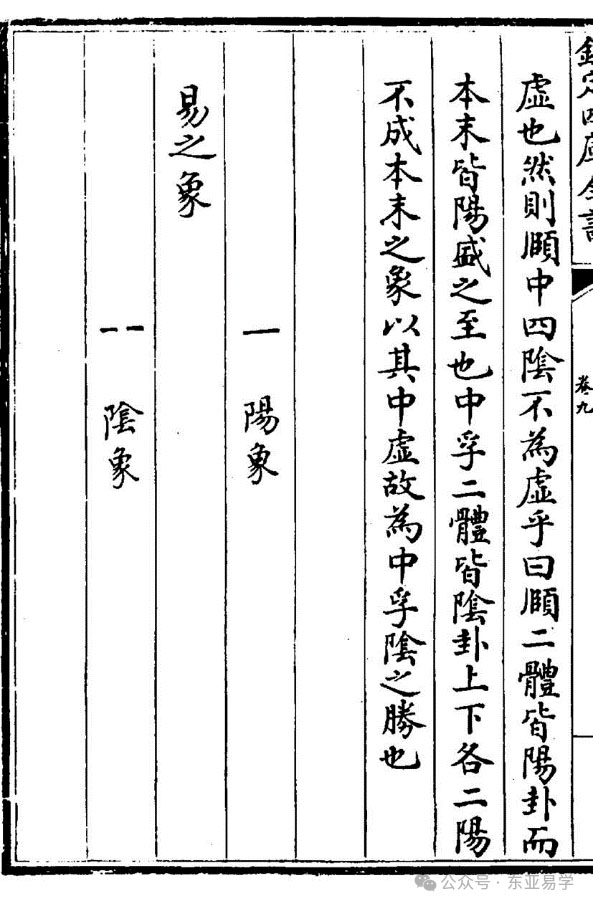 欽定四庫全書
卷九
虛也然則頤中四陰不為虛乎曰頤二體皆陽卦而
本末皆陽盛之至也中孚二體皆陰卦上下各二陽
不成本末之象以其中虛故為中孚陰之勝也
陽象
易之象
陰象
公众号·东亚易学